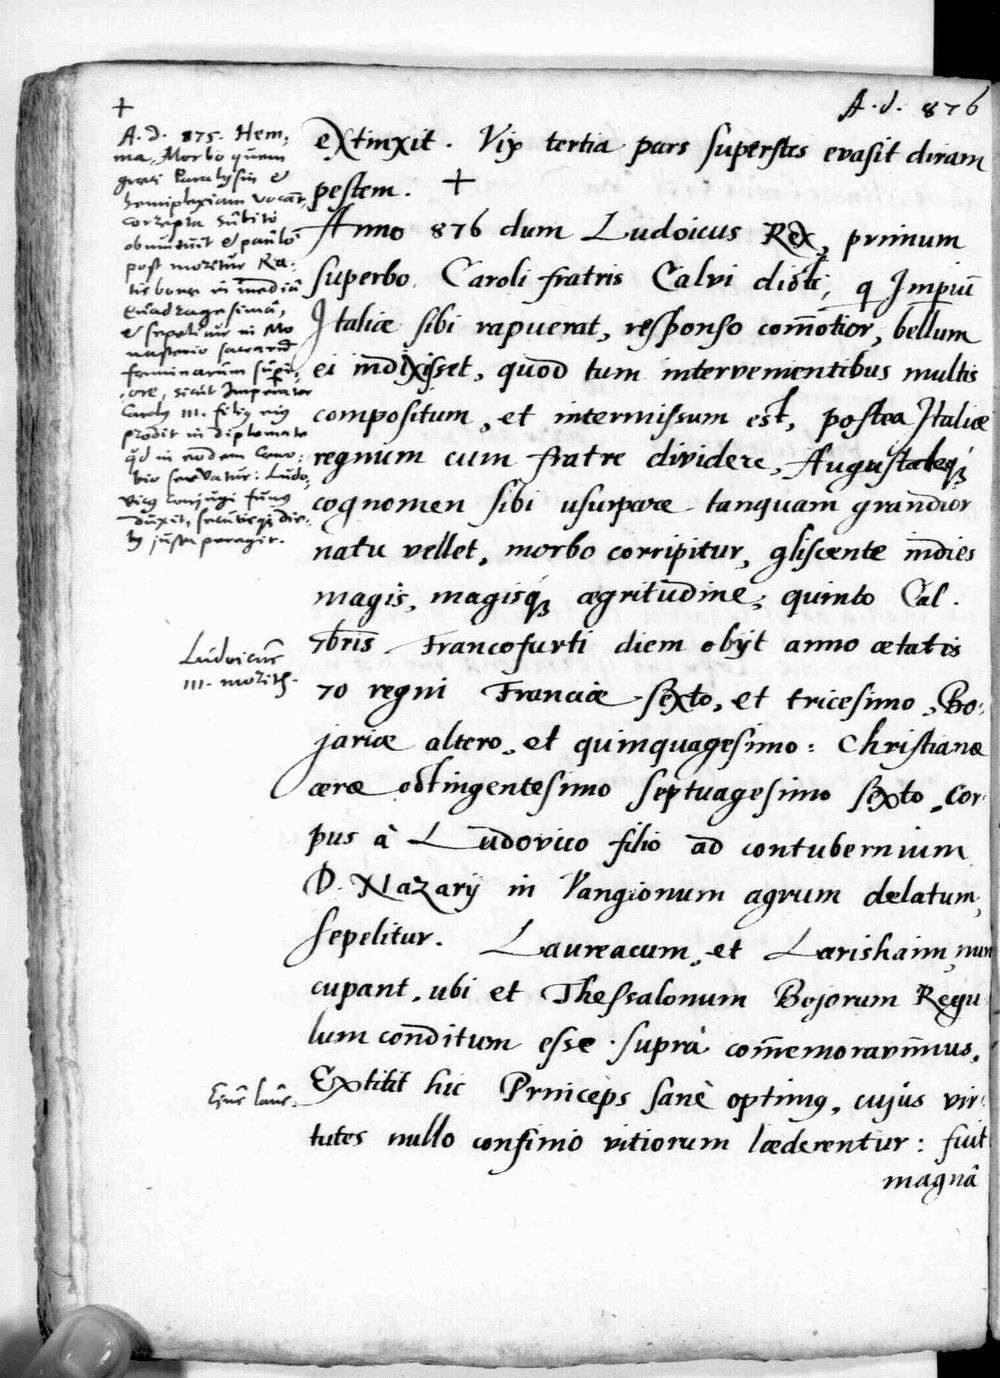 A. d. 876
+
A. d. 875. Hem-
ma, Morbo quem
graeci Paralysin et
hemiplexiam vocāt,
correpta sûbito
obmûtuit et paulò
post moritur Ra-
tisbonae in mediā
Quadragesimâ,
et sepelitur in Mo
nasterio sacrarū
feminarum supe-
riore, sicut Imperator
Carolꝯ III. filiꝯ eiꝯ
prodit in diplomate
qd in eodem Coeno-
bio servatur: Ludo-
vicꝯ conjugi funꝯ
duxit,
justa peragit.
extinxit. Vix tertia pars superstes evasit diram
pestem. +
Anno 876 dum Ludoicus Rex, primum
superbo Caroli fratris Calvi dicti, q Imperiū
Italiae sibi rapuerat, responso com̄otior, bellum
ei indixisset, quod tum intervenientibus multis
compositum, et intermissum est, postea Italiae
regnum cum fratre dividere, Augustaleq́ꝫ
cognomen sibi usurpare tanquam grandior
natu vellet, morbo corripitur, gliscente indies
magis, magisq́ꝫ aegritudine, quinto Cal.
7bris Francofurti diem obijt anno aetatis
Ludoicus
III. moritʳ.
70 regni Franciae sexto, et tricesimo, Bo-
jariae altero, et quinquagesimo: Christianae
aerae octingentesimo septuagesimo sexto, Cor-
pus à Ludovico filio ad contubernium
D. Nazarij in Vangionum agrum delatum,
sepelitur. Laureacum, et Lorishaim, nun
cupant, ubi et Thessalonum Bojorum Regu
lum conditum esse suprà com̄emoravimus.
Ejus laus.
Extitit hic Princeps sanè optimꝯ, cujus vir-
tutes nullo confinio vitiorum laederentur: fuit
magnâ